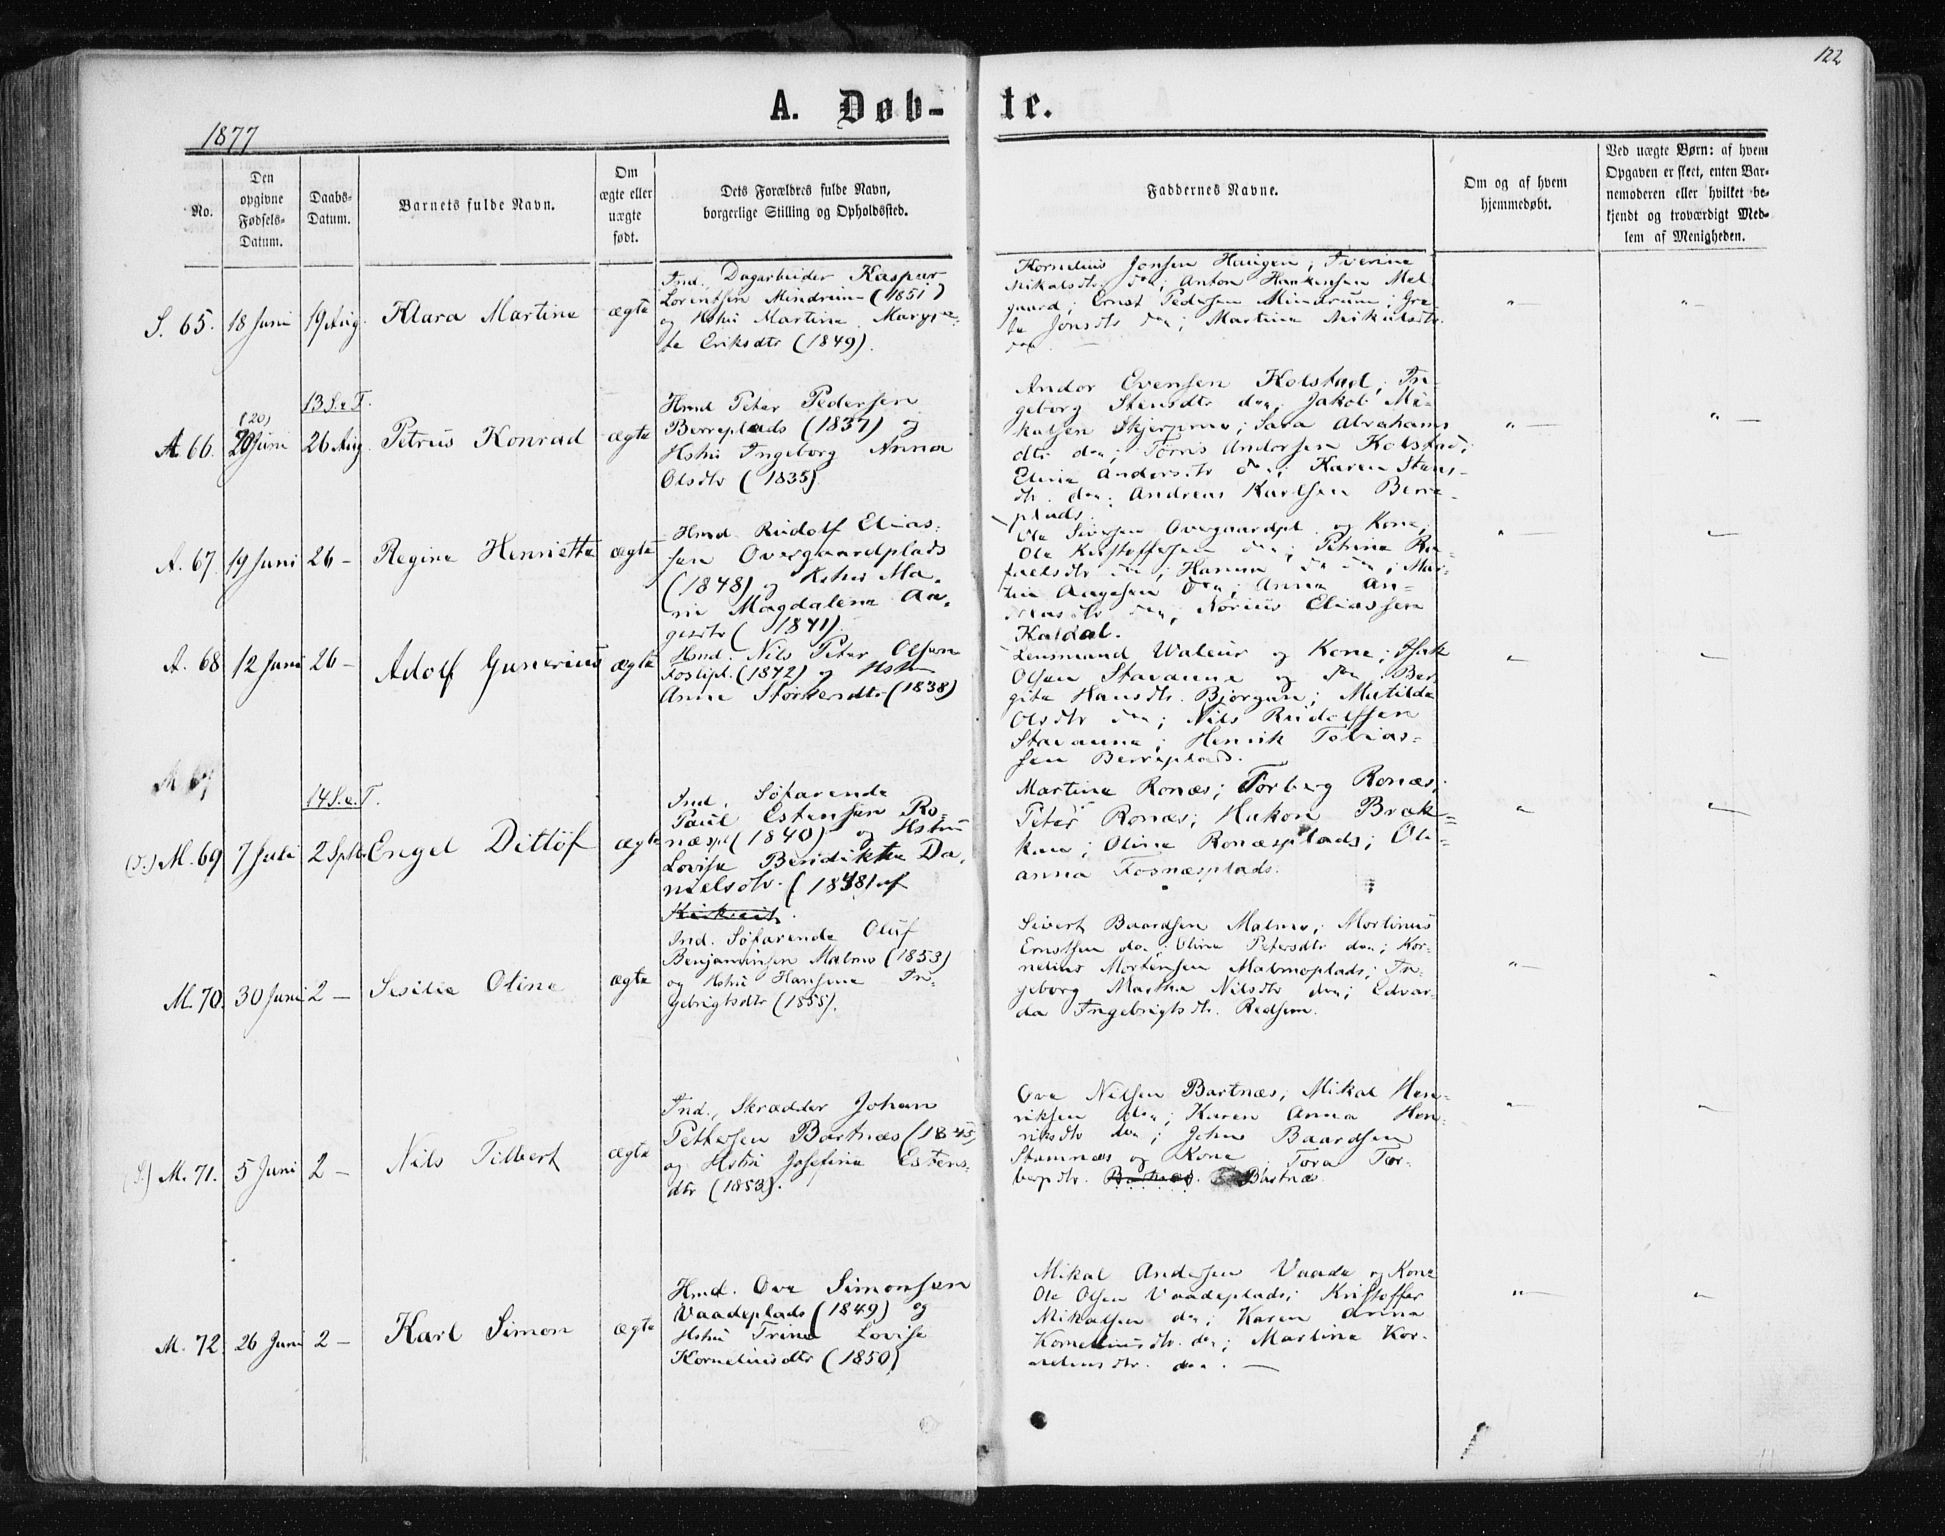 122
A. Døb-te.
1877
No.
Den opgivne Fødsels-Datum.
Daabs-Datum.
Barnets fulde Navn.
Om ægte eller uægte født.
Dets Forældres fulde Navn, borgerlige Stilling og Opholdssted.
Faddernes Navne.
Om og af hvem hjemmedøbt.
Ved uægte Børn: af hvem Opgaven er skeet, enten Barnemoderen eller hvilket bekjendt og troværdigt Medlem af Menigheden.
S. 65. 18 Juni 19 Aug. Klara Martine ægte
Ind., Dagarbeider Kaspar
Lorentsen Mindrum (1851)
og Hstru Martine Margre-
te Eriksdtr (1849).
Kornelius Jonsen Haugen; Iverine
Nikolsdtr. do; Anton Hankensen Mel-
gaard; Ernst Pedersen Mindrum; Gre-
te Jonsdtr do; Martina Nikolsdtr
do.
13 S. e. T.
A. 66. (20) 20 Juni 26 Aug. Petrus Konrad ægte
Hmd Peter Pedersen
Berreplads (1837) og
Hstru Ingeborg Anna
Olsdtr (1835).
Andor Evensen Kolstad; In-
geborg Stensdtr do; Jakob Mi-
kalsen Skjerpmo; Sara Abrahams
dtr do; Tønis Andorsen Kolstad;
Eline Andorsdtr do; Karen Stens-
dtr. do; Andreas Karlsen Berre-
plads.
A. 67. 19 Juni 26 - Regine Henriette ægte
Hmd. Rudolf Elias-
sen Overgaardplads
(1848) og Hstru Ma-
rie Magdalena Aa-
gesdtr (1841).
Ole Sivertsen Overgaardpl. og Kone;
Ole Kristoffersen do; Petrine Ra-
faelsdtr do; Hanna do do; Mar-
tin Aagesen do; Anna An-
dreasdtr do; Norius Eliassen
Kaldal.
A. 68 12 Juni 26 - Adolf Gunerius ægte
Hmd. Nils Peter Olsen
Foslipl. (1842) og Hstru
Anne Størkersdtr (1838)
Lensmand Waleur og Kone; Isak
Olsen Stavanne og do Ber-
gite Hansdtr. Bjørgan; Matilde
Olsdtr do; Nils Rudolfsen
Stavanne; Henrik Tobias-
sen Berreplads.
14 S. e. T.
M. 69 7 Juli 2 Sptbr Engel Ditløf ægte
Ind. Søfarende
Paul Estensen Ro-
næspl (1840) og Hstru
Lovise Bendikte Da-
nielsdtr. (1838) af
Martine Ronæs; Torberg Ronæs;
Peter Ronæs; Hakon Bræk-
ken; Oline Ronæsplads; Ole-
anna Fosnæsplads.
M. 70. 30 Juni 2 - Sesilie Oline ægte
Ind. Søfarende Oluf
Benjaminsen Malmo (1853)
og Hstru Hansine In-
gebrigtsdtr (1855).
Sivert Baardsen Malmo; Mortinus
Ernstsen do; Oline Petersdtr do; Kor-
nelius Mortensen Malmoplads; In-
geborg Martha Nilsdtr do; Edvar-
da Ingebrigtsdtr. Redsem.
M. 71. 5 Juni 2 - Nils Tilbert ægte
Ind., Skrædder Johan
Pettersen Bartnæs (1845)
og Hstru Josefine Estens-
dtr (1853).
Ove Nilsen Bartnæs; Mikal Hen-
riksen do; Karen Anna Hen-
riksdtr do; Johns Baardsen
Stamnæs og Kone; Tora Tor-
bergsdtr. Bartnæs. Bartnæs.
M. 72. 26 Juni 2 - Karl Simon ægte
Hmd. Ove Simonsen
Vaadeplads (1849) og
Hstru Trine Lovise
Korneliusdtr (1850)
Mikal Andersen Vaade og Kone
Ole Olsen Vaadeplads; Kristoffer
Mikalsen do; Karen Anna
Korneliusdtr. do; Martina Kor-
neliusdtr. do.